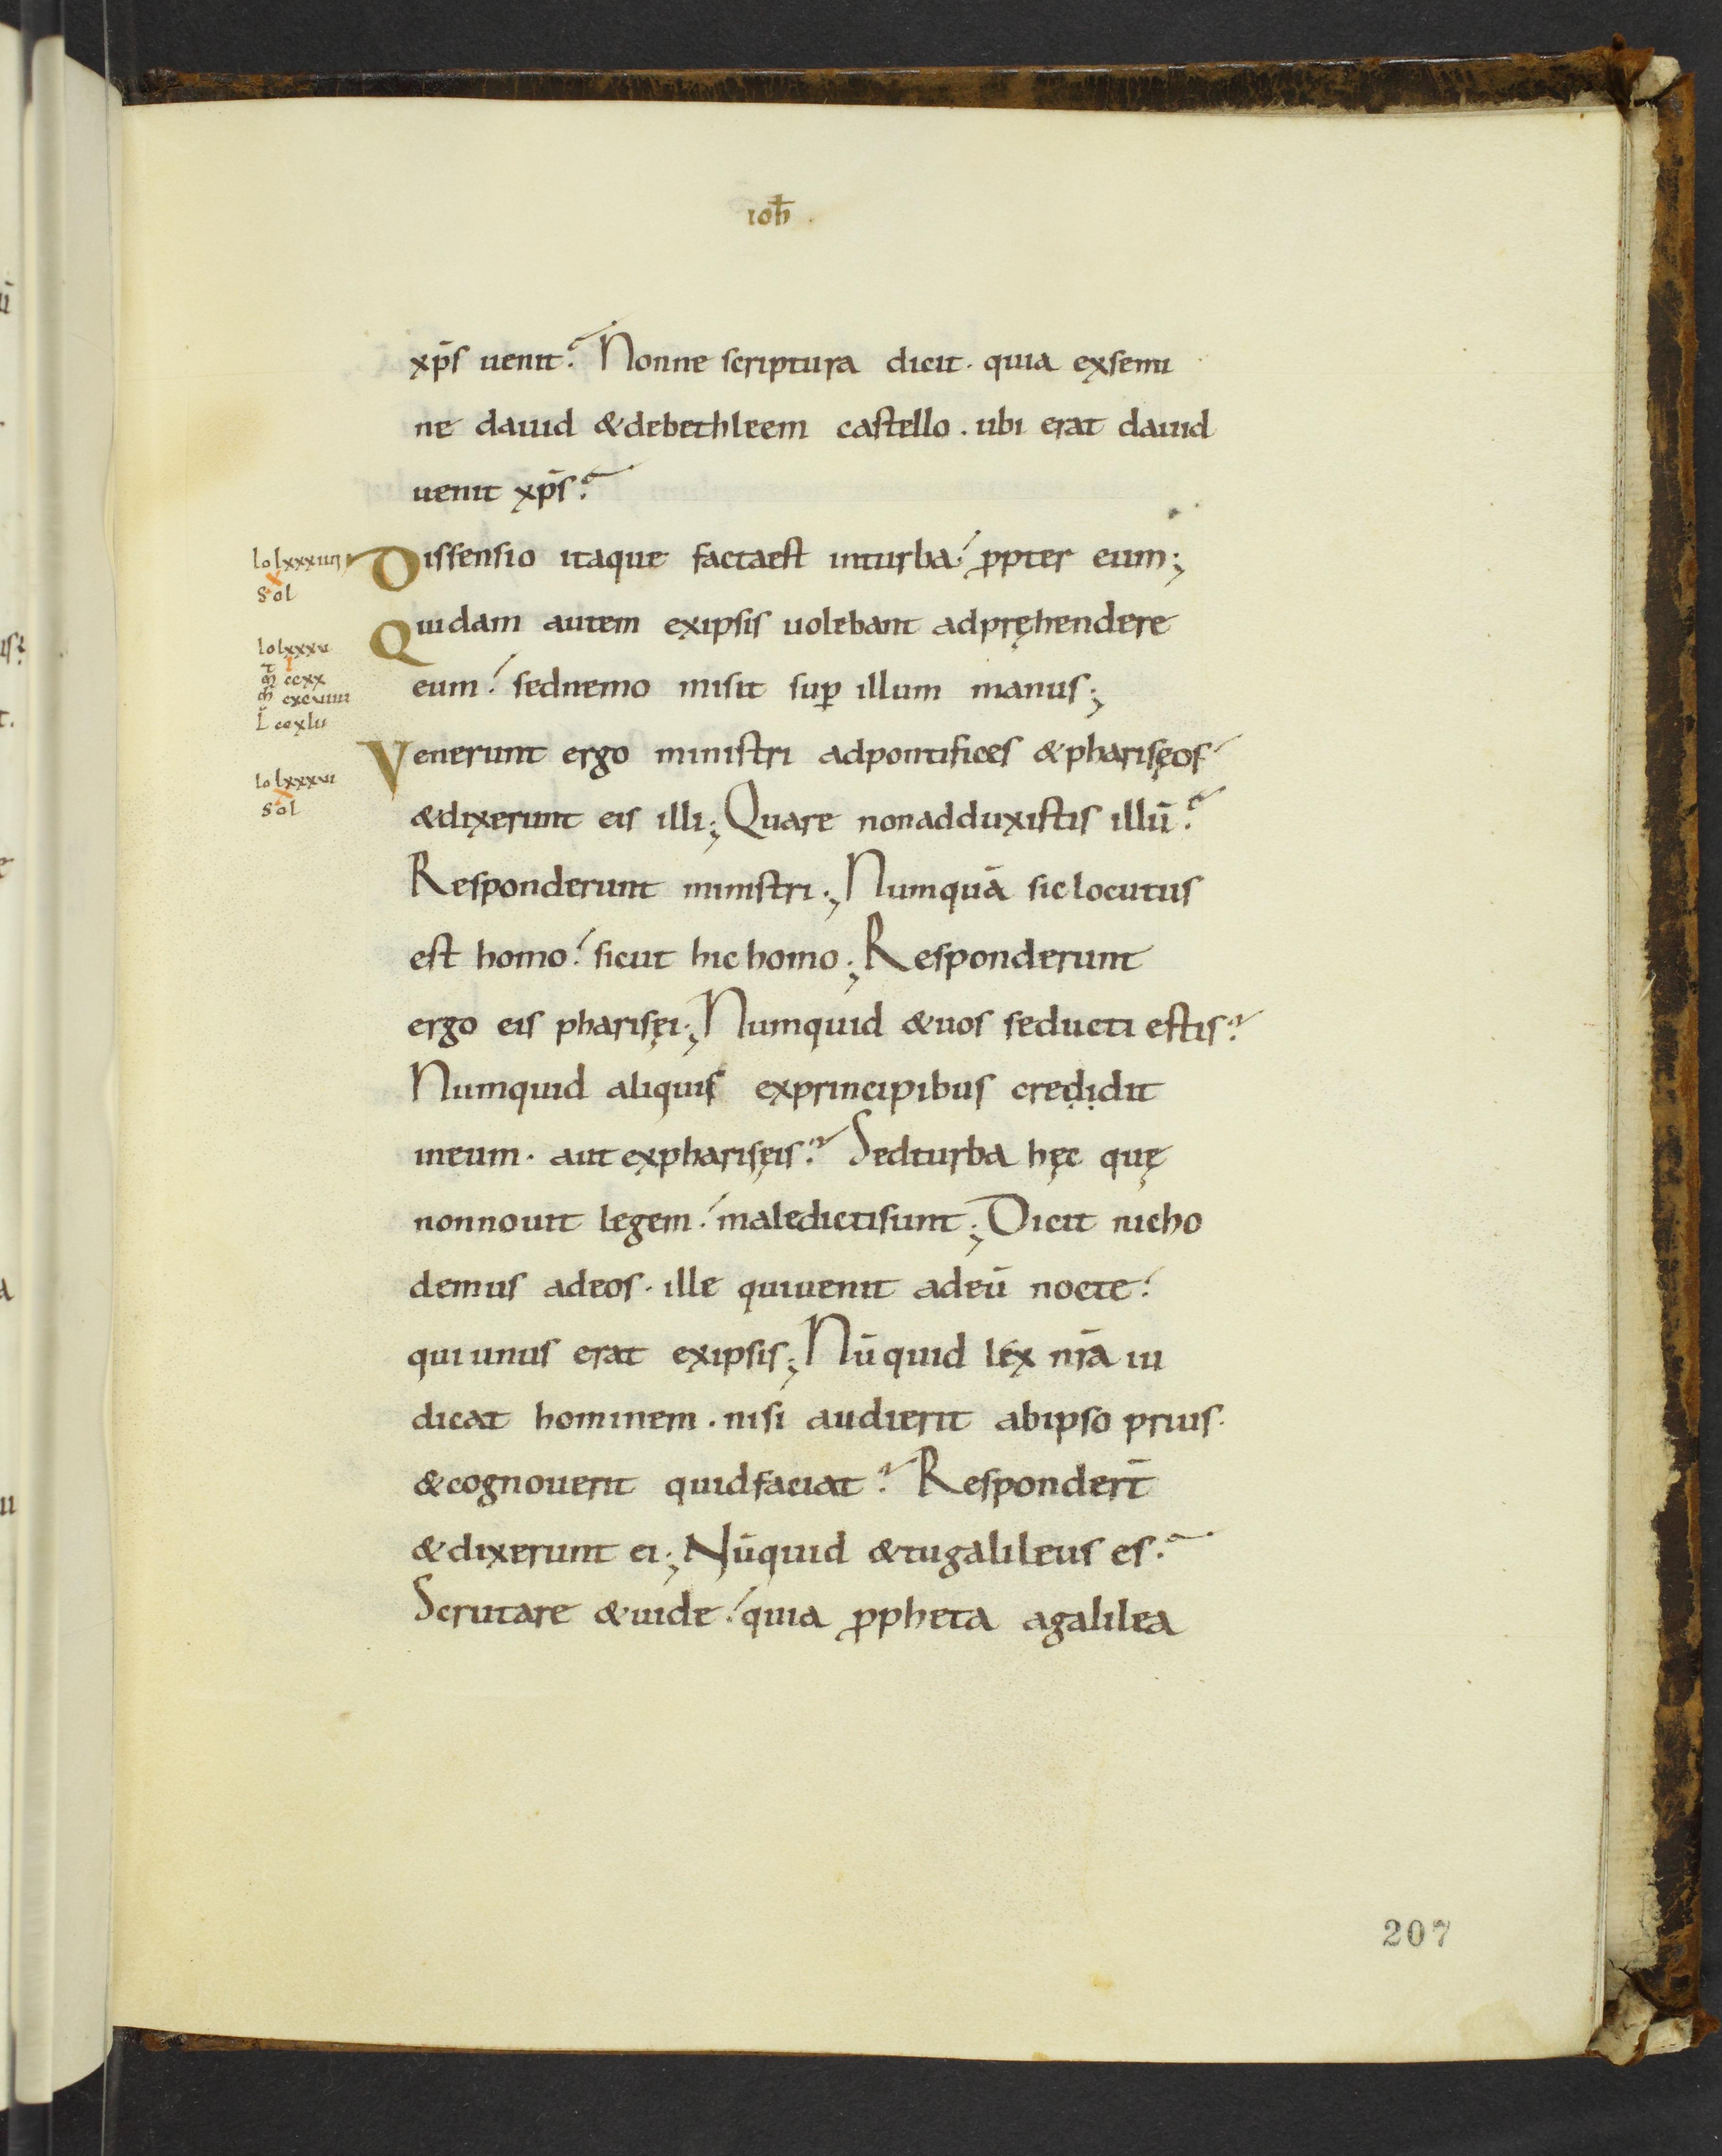 ioħ.
xp̄s uenit? Nonne scriptura dicit· quia exsemi
ne dauid &debethleem castello . ubi erat dauid
uenit xp̄s?
Io lxxxiiii
x
sol
Dissensio itaque factaest inturba? ꝓpter eum;
Io lxxxv
I
m̄ ccxx
L̄ ccxlu
Quidam autem exipsis uolebant adpręhendere
eum? sednemo misit suꝑ illum manus;
Io lxxxvi
x
sol
Venerunt ergo ministri adpontifices &pharisęos
&dixerunt eis illi; Quare nonadduxistis illū?
Responderunt ministri; Numquā sic locutus
est homo? sicut hic homo; Responderunt
ergo eis pharisęi; Numquid &uos seducti estis?
Numquid aliquis exprincipibus credidit
ineum · aut expharisęis? Sedturba hęc quę
nonnouit legem? maledictisunt; Dicit nicho
demus adeos · ille quiuenit adeū nocte?
qui unus erat exipsis; Nūquid lex nr̄a iu
dicat hominem . nisi audierit abipso prius·
&cognouerit quidfaciat? Responder̄t
&dixerunt ei; Nūquid &tugalileus es?
Scrutare &uide? quia ꝓpheta agalilea
207